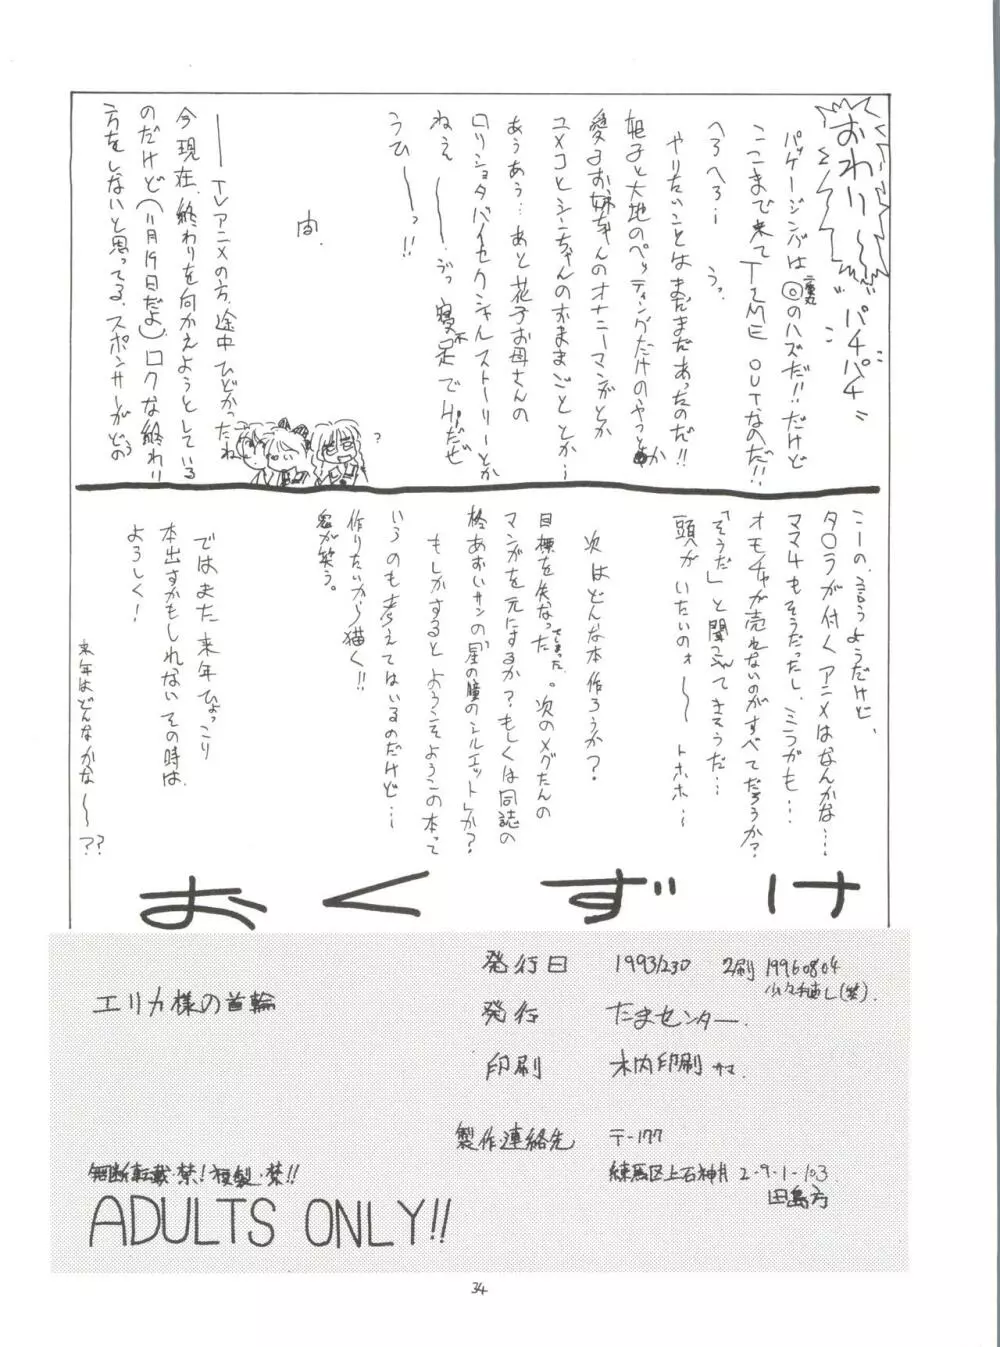 おわりー
パチパチ
パッケージングは◎のハズだ!!だけど
二重丸
ここまで来てTIME OUTなのだ!!
へろへろ… うっ
やりたいことはまだまだあったのだ!!
愛子お姉ちゃんのオナニーマンガとか
ユメコとシーちゃんのおままごととか…
あぅあぅ…あと花子お母さんの
ねぇ――
寝不足でHiだぜ
うひ――っ!!
間.
――TVアニメの方、途中ひどかったね
今現在、終わりを向かえようとしている
のだけど(11月19日だよ)ロクな終わり
方をしないと思ってる、スポンサーがどう
こーの、言うようだけど、
タ○ラが付くアニメはなんかな…
ママ4もそうだったし、ミラがも…
オモチャが売れないのがすべてだろうか?
「そうだ」と聞こえてきそうだ…
頭がいたいのォ――トホホ…
次はどんな本作ろうか?
目標を失なってしまった。次のメグたんの
マンガを元にするか?もしくは同誌の
柊あおいサンの「星の瞳のシルエット」か?
もしかするとようこそようこの本って
いうのも考えてはいるのだけど…
作りたいから描く!!
鬼が笑う。
ではまた来年ひょっこり
本出すかもしれないその時は
よろしく!
来年はどんなかな〜??
おくずけ
エリカ様の首輪
発行日 1993/230 2刷 19960804
少々手直し(笑).
発行 たまセンター.
印刷 木内印刷 サマ.
製作・連絡先 〒-177
練馬区上石神井2-9-1-103
田島方
無断転載・禁!複製・禁!!
ADULTS ONLY!!
34